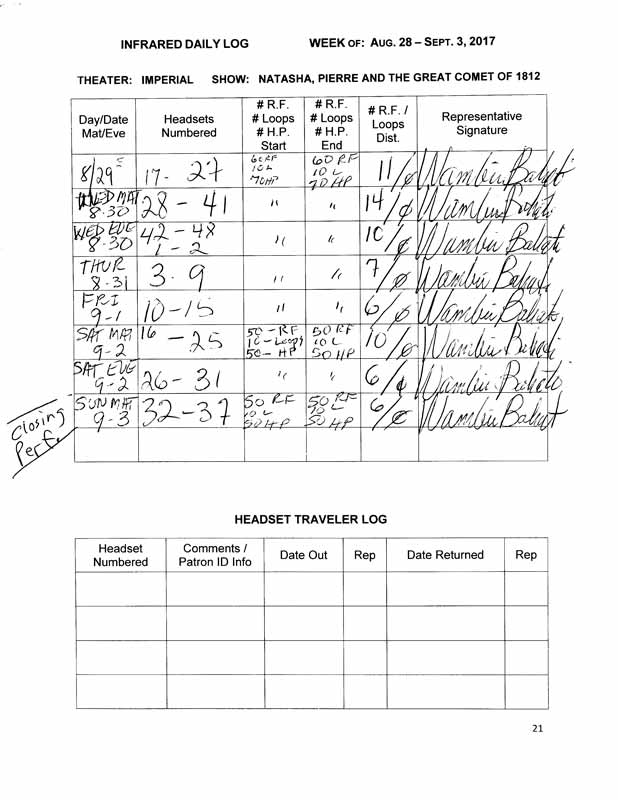 INFRARED DAILY LOG WEEK OF: AUG. 28 – SEPT. 3, 2017
THEATER: IMPERIAL SHOW: NATASHA, PIERRE AND THE GREAT COMET OF 1812
Day/Date Mat/Eve Headsets Numbered # R.F. # Loops # H.P. Start # R.F. # Loops # H.P. End # R.F. / Loops Dist. Representative Signature
8/29 E 17 - 27 60 RF 10 L 70 HP 60 RF 10 L 70 HP 11/0
WED MAT 8-30 28 - 41 " " 14/0
WED EVE 8-30 42 - 48 1 - 2 " " 10/0
THUR 8-31 3 - 9 " " 7/0
FRI 9-1 10 - 15 " " 6/0
SAT MAT 9-2 16 - 25 50 - RF 10 - Loops 50 - HP 50 RF 10 L 50 HP 10/0
SAT EVE 9-2 26 - 31 " " 6/0
SUN MAT 9-3 32 - 37 50 RF 10 L 50 HP 50 RF 10 L 50 HP 6/0
Closing
Perf.
HEADSET TRAVELER LOG
Headset Numbered Comments / Patron ID Info Date Out Rep Date Returned Rep
21